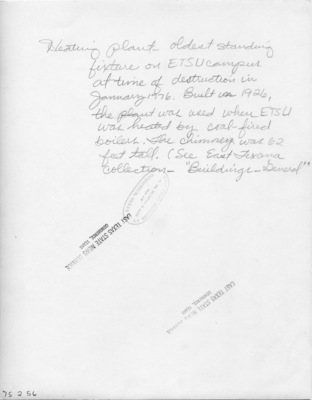 Heating plant oldest standing
fixture on ETSU campus
at time of destruction in
January 1976. Built in 1926,
the plant was used when ETSU
was heated by coal-fired
boilers. The chimney was 62
feet tall. (See East Texana
Collection - "Buildings - General"
EAST TEXAS STATE NEWS SERVICE
COMMERCE, TEXAS
EAST TEXAS STATE NEWS SERVICE
COMMERCE, TEXAS
75 2 56